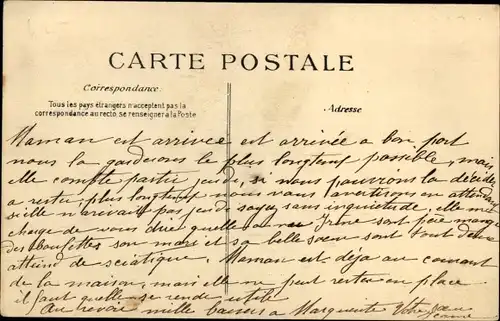 CARTE POSTALE
Correspondance
Tous les pays étrangers n'acceptent pas la
correspondance au recto, se renseigner à la Poste
Adresse
Maman est arrivée est arrivée a bon port
nous la garderons le plus longtemp possible, mais
elle compte partir jeudi, si nous pouvions la décider
a rester plus longtemps nous vous
si elle n'arrivait pas jeudi soyez sans inquietude, elle me
charge de vous dire quelle a vu Irène
des son mari et sa belle soeur sont tout deux
atteint de sciatique. Maman est déja au courant
de la maison, mais elle ne peut rester en place
il faut quelle se rende utile
Au revoir mille baisers a Marguerite Votre